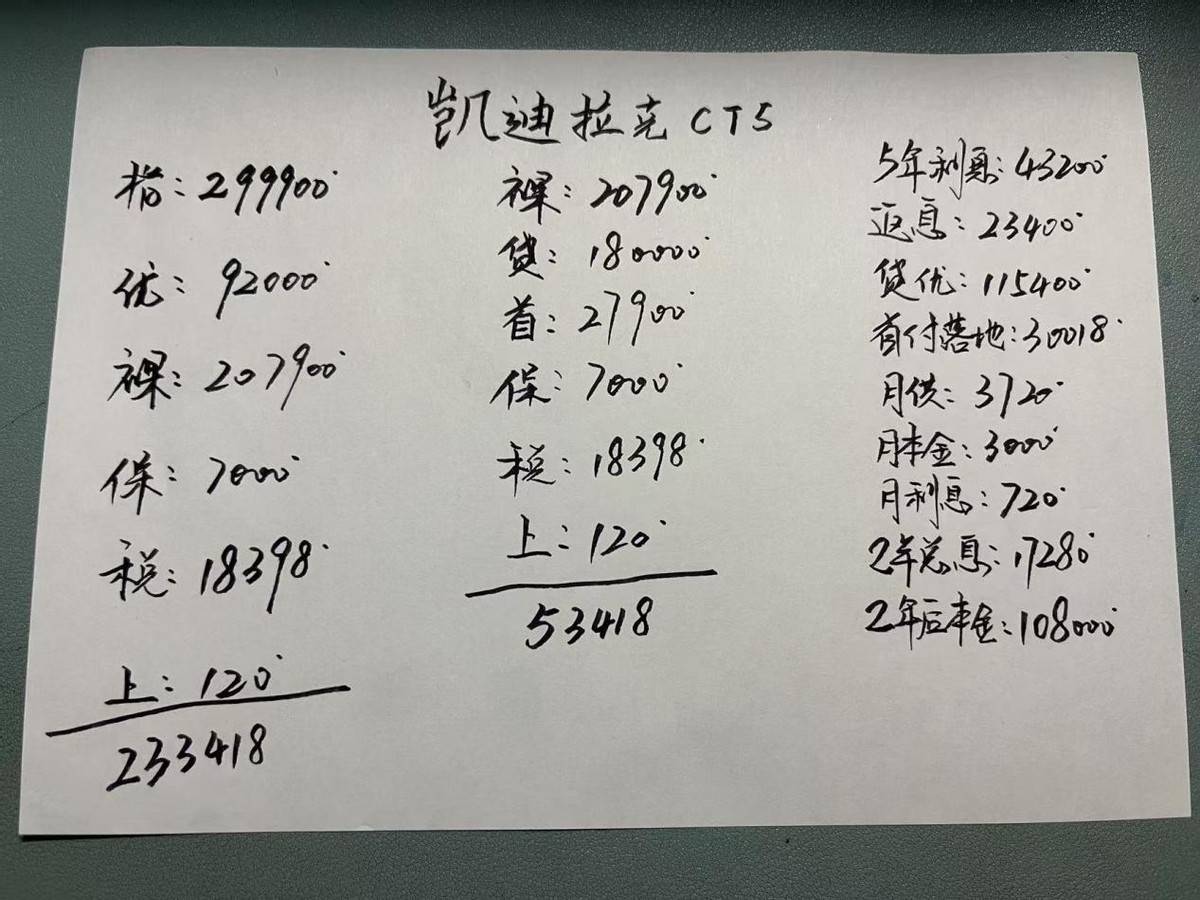 凯迪拉克 CT5
指: 299900
优: 92000
裸: 207900
保: 7000
税: 18398
上: 120
233418
裸: 207900
贷: 180000
首: 27900
保: 7000
税: 18398
上: 120
53418
5年利息: 43200
返息: 23400
贷优: 115400
首付落地: 30018
月供: 3720
月本金: 3000
月利息: 720
2年总息: 17280
2年后本金: 108000